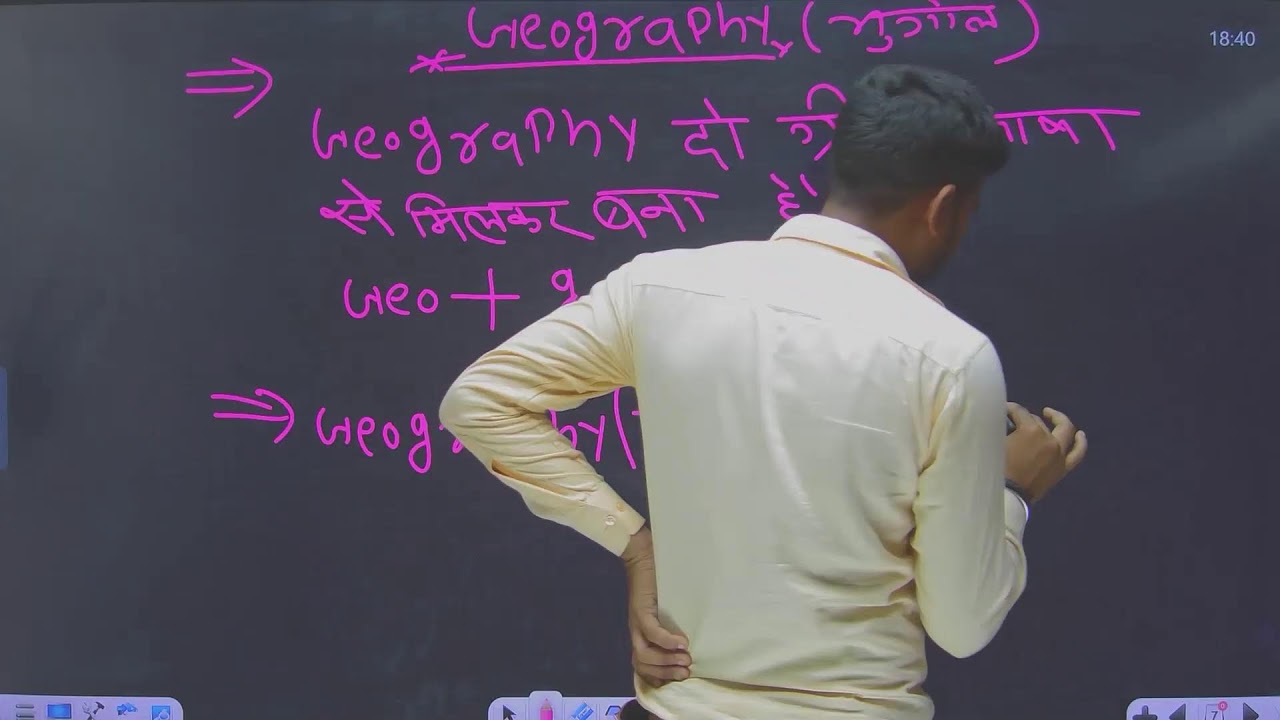 Geography (भुगोल)
18:40
Geography दो
से मिलकर बना है
Geo +
Geography